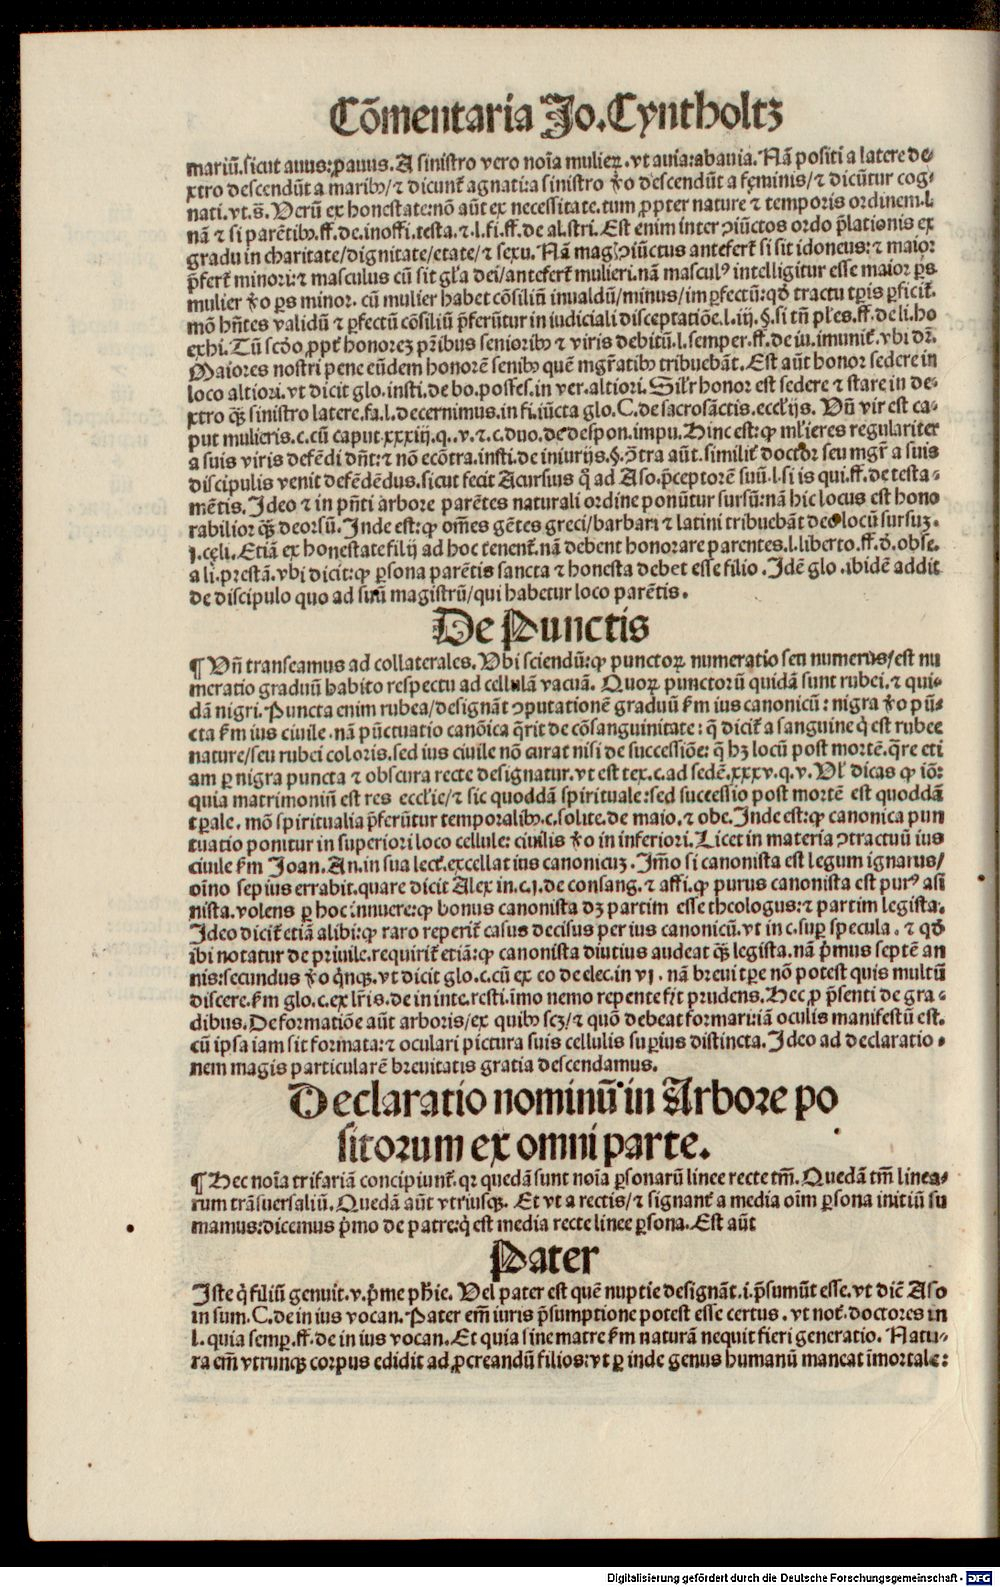 Cõmentaria Jo. Cyntholtz
mariũ. sicut auus: ꝓauus. A sinistro vero noĩa mulieꝝ. vt auia: abauia. Nã positi a latere de⸗
xtro descendũt a marib⁹/ ⁊ dicunt᷑ agnati: a sinistro ꝟo descendũt a feminis/ ⁊ dicũtur cog⸗
nati. vt. s̃. Verũ ex honestate: nõ aũt ex necessitate. tum ꝓpter nature ⁊ temporis ordinem. l.
nã ⁊ si parẽtib⁹. ff. de. inoffi. testa. ⁊. l. fi. ff. de al. stri. Est enim inter ꝯiũctos ordo p̃lationis ex
gradu in charitate/ dignitate/ etate/ ⁊ sexu. Nã mag̃ ꝯiũctus antefert᷑ si sit idoneus: ⁊ maior
p̃fert᷑ minori: ⁊ masculus cũ sit gl̃a dei/ antefert᷑ mulieri. nã mascul⁹ intelligitur esse maior ꝑs.
mulier ꝟo ꝑs minor. cũ mulier habet cõsiliũ inualdũ/ minus/ imꝑfectũ: qđ tractu tp̃is ꝑficit᷑.
mõ hñtes validũ ⁊ ꝑfectũ cõsiliũ p̃ferũtur in iudiciali disceptatiõe. l. iij. §. si tñ pl̃es. ff. de li. ho
exhi. Tũ scđo ꝓpt᷑ honorez pr̃ibus seniorib⁹ ⁊ viris debitũ. l. semper. ff. de iu. imunit᷑. vbi dr̃.
Maiores nostri pene eũdem honorẽ senib⁹ quẽ mgr̃atib⁹ tribuebãt. Est aũt honor sedere in
loco altiori. vt dicit glo. insti. de bo. posses. in ver. altiori. Sil̃r honor est sedere ⁊ stare in de⸗
xtro qꝫ̃ sinistro latere. fa. l. decernimus. in fi. iũcta glo. C. de sacrosãctis. eccl̃ijs. Vñ vir est ca⸗
put mulieris. c. cũ caput. xxxiij. q. v. ⁊. c. duo. de despon. impu. Hinc est: ꝙ ml̃ieres regulariter
a suis viris defẽdi dñt: ⁊ nõ ecõtra. insti. de iniurijs. §. ꝯtra aũt. similit᷑ doctor seu mgr̃ a suis
discipulis venit defẽdẽdus. sicut fecit Acursius q̃ ad Aso. p̃ceptorẽ suũ. l. si is qui. ff. de testa⸗
mẽtis. Ideo ⁊ in pñti arbore parẽtes naturali ordine ponũtur sursũ: nã hic locus est hono
rabilior qꝫ̃ deorsũ. Inde est: ꝙ om̃es gẽtes greci/ barbari ⁊ latini tribuebãt deo locũ sursuꝫ.
j. celi. Etiã ex honestate filij ad hoc tenent᷑. nã debent honorare parentes. l. liberto. ff. đ. obse.
a li. prestã. vbi dicit: ꝙ ꝑsona parẽtis sancta ⁊ honesta debet esse filio. Idẽ glo. ibidẽ addit
de discipulo quo ad suũ magistrũ/ qui habetur loco parẽtis.
De Punctis
¶ Vñ transeamus ad collaterales. Vbi sciendũ: ꝙ punctoꝝ numeratio seu numerus/ est nu
meratio graduũ habito respectu ad cellulã vacuã. Quoꝝ punctorũ quidã sunt rubei. ⁊ qui⸗
dã nigri. Puncta enim rubea/ designãt ꝯputationẽ graduũ ẜm ius canonicũ: nigra ꝟo pũ⸗
cta ẜm ius ciuile. nã pũctuatio canõica q̃rit de cõsanguinitate: q̃ dicit᷑ a sanguine q̃ est rubee
nature/ seu rubei coloris. sed ius ciuile nõ curat nisi de successiõe: q̃ hꝫ locũ post mortẽ. q̃re eti
am ꝑ nigra puncta ⁊ obscura recte designatur. vt est tex. c. ad sedẽ. xxxv. q. v. Vl̃ dicas ꝙ iõ:
quia matrimoniũ est res eccl̃ie/ ⁊ sic quoddã spirituale: sed successio post mortẽ est quoddã
tꝑale. mõ spiritualia p̃ferũtur temporalib⁹. c. solite. de maio. ⁊ obe. Inde est: ꝙ canonica pun
tuatio ponitur in superiori loco cellule: ciuilis ꝟo in inferiori. Licet in materia ꝯtractuũ ius
ciuile ẜm Joan. An. in sua lect᷑. excellat ius canonicuꝫ. Im̃o si canonista est legum ignarus/
oĩno sepius errabit. quare dicit Alex in. c. j. de consang. ⁊ affi. ꝙ purus canonista est pur⁹ asi
nista. volens ꝑ hoc innuere: ꝙ bonus canonista dꝫ partim esse theologus: ⁊ partim legista.
Ideo dicit᷑ etiã alibi: ꝙ raro reperit᷑ casus decisus per ius canonicũ. vt in c. suꝑ specula. ⁊ qđ
ibi notatur de priuile. requirit᷑ etiã: ꝙ canonista diutius audeat qꝫ̃ legista. nã p̃mus septẽ an
nis: secundus ꝟo q̃nqꝫ. vt dicit glo. c. cũ ex eo de elec. in vj. nã breui tꝑe nõ potest quis multũ
discere. ẜm glo. c. ex lr̃is. de in inte. resti. imo nemo repente fit prudens. Hec ꝓ p̃senti de gra⸗
dibus. De formatiõe aũt arboris/ ex quib⁹ scꝫ/ ⁊ quõ debeat formari: iã oculis manifestũ est.
cũ ipsa iam sit formata: ⁊ oculari pictura suis cellulis suꝑius distincta. Ideo ad declaratio⸗
nem magis particularẽ breuitatis gratia descendamus.
Declaratio nominũ in Arbore po
sitorum ex omni parte.
¶ Hec noĩa trifariã concipiunt᷑. qꝛ quedã sunt noĩa ꝑsonarũ linee recte tm̃. Quedã tm̃ linea⸗
rum trãsuersaliũ. Quedã aũt vtriusqꝫ. Et vt a rectis/ ⁊ signant᷑ a media oĩm ꝑsona initiũ su
mamus: dicemus p̃mo de patre: q̃ est media recte linee ꝑsona. Est aũt
Pater
Iste q̃ filiũ genuit. v. p̃me ph̃ie. Vel pater est quẽ nuptie designãt. i. p̃sumũt esse. vt dic̃ Aso
in sum. C. de in ius vocan. Pater em̃ iuris p̃sumptione potest esse certus. vt not᷑. doctores in
l. quia semꝑ. ff. de in ius vocan. Et quia sine matre ẜm naturã nequit fieri generatio. Natu⸗
ra em̃ vtrunqꝫ corpus edidit ad ꝓcreandũ filios: vt ꝑ inde genus humanũ maneat im̃ortale:
Digitalisierung gefördert durch die Deutsche Forschungsgemeinschaft - DFG